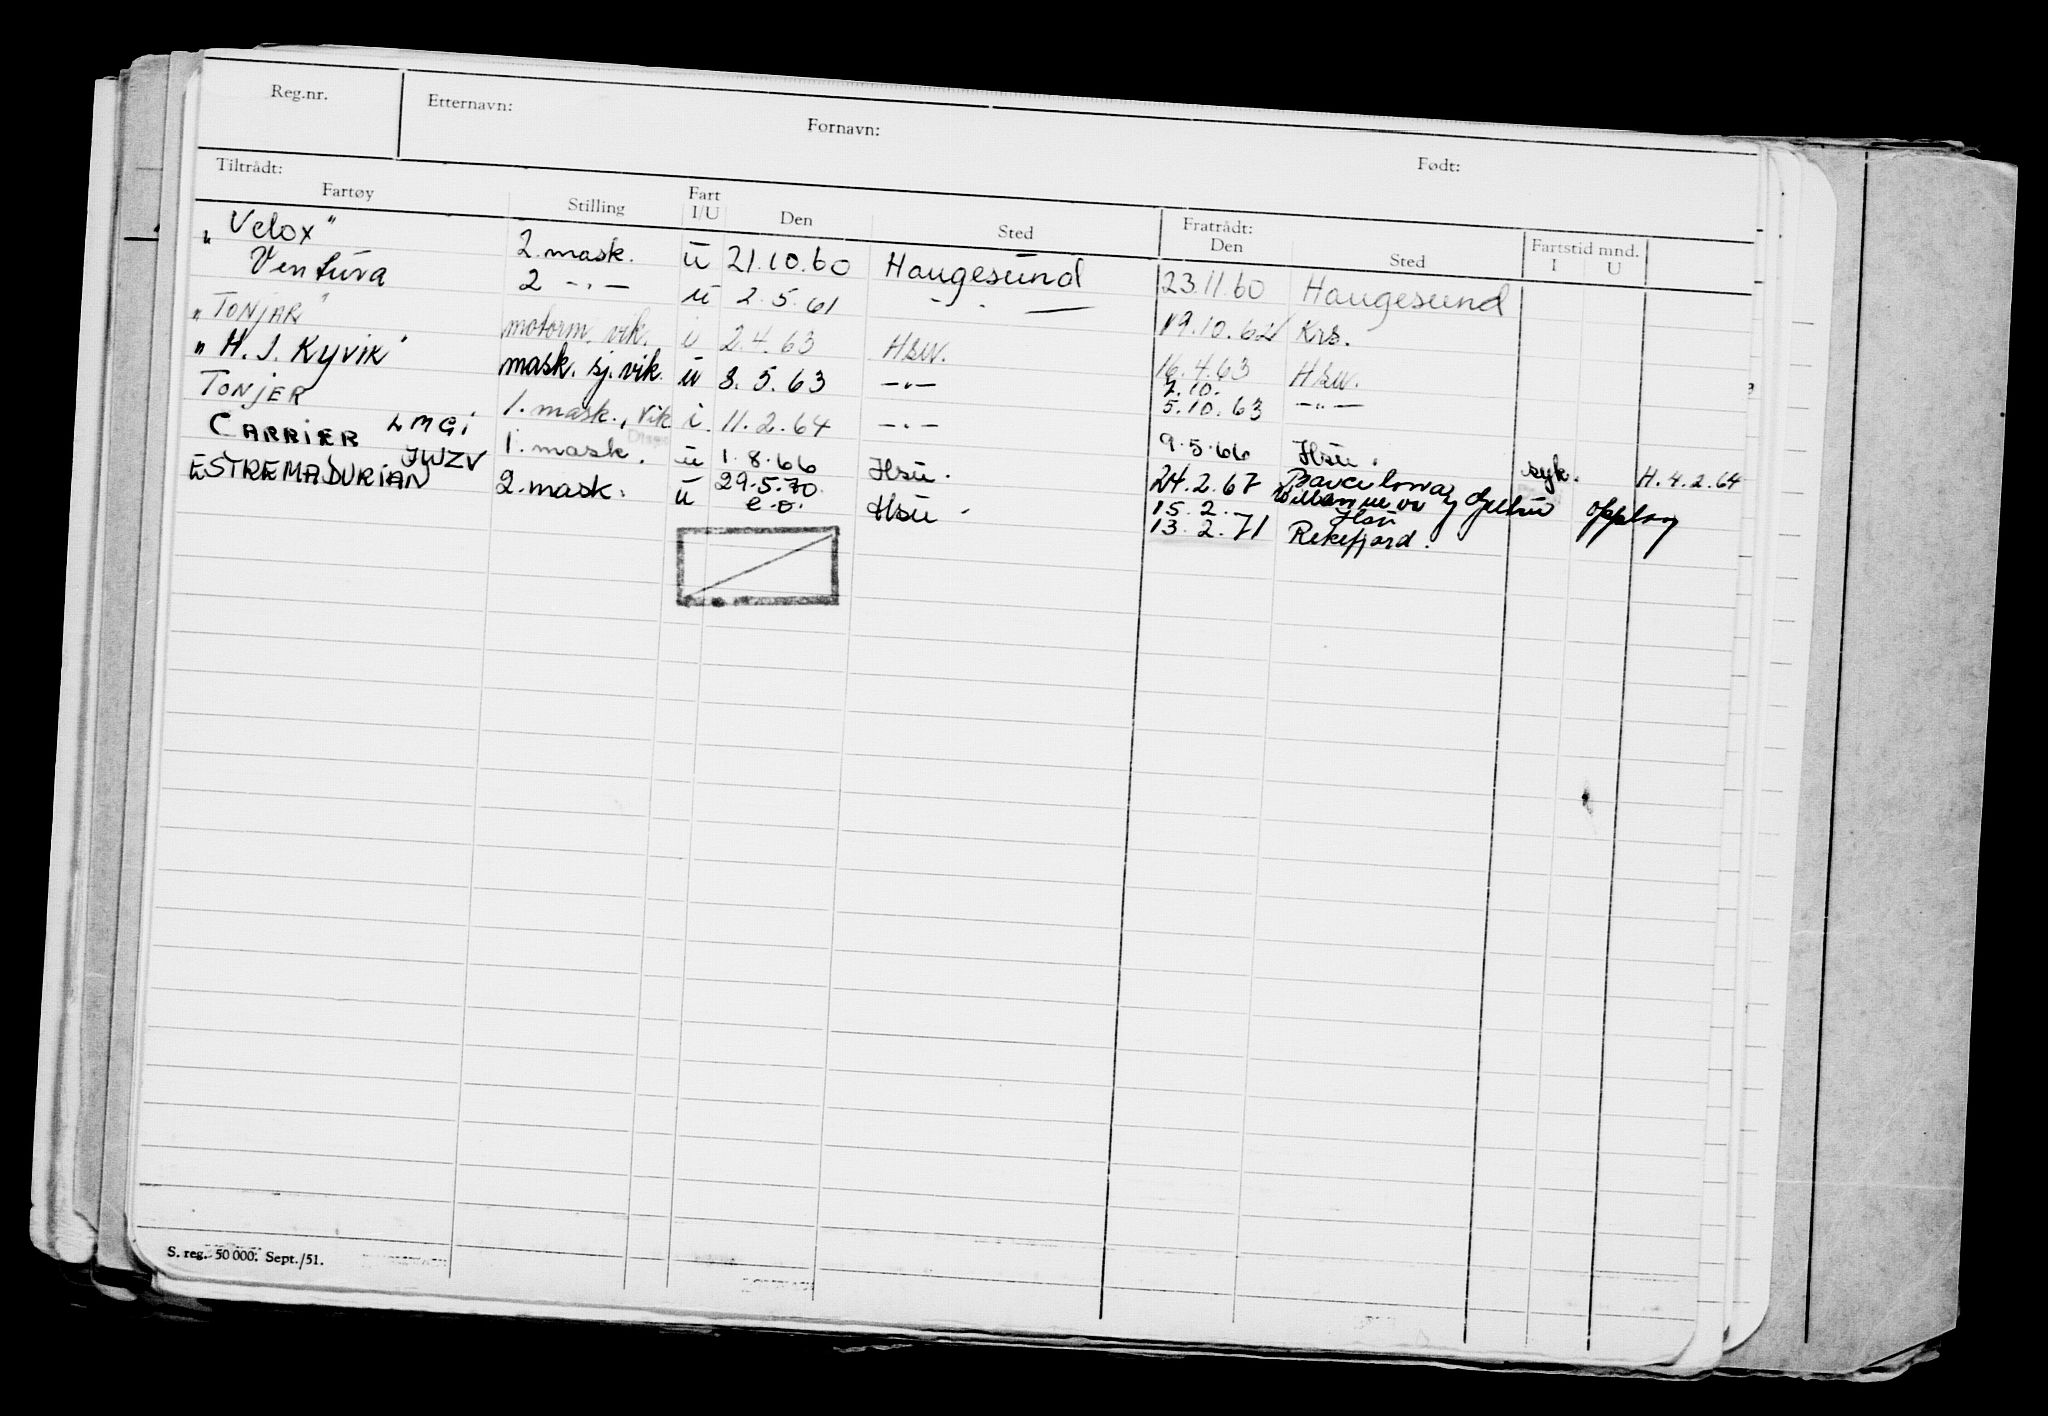 Reg.nr. Etternavn: Fornavn: Født:
Tiltrådt: Fratrådt:
Fartøy Stilling Fart I/U Den Sted Den Sted Fartstid mnd. I U
„Velox" 2. mask. u 21.10.60 Haugesund 23.11.60 Haugesund
Ventura 2 -"- u 2.5.61 -"- 19.10.62 Krs.
„TONJAR" motorm. vik. i 2.4.63 Hsu. 16.4.63 Hsu.
„H. J. Kyvik" mask. sj. vik. u 8.5.63 -"- 2.10. 5.10.63 -"-
TONJER 1. mask., vik i 11.2.64 -"- 9.5.66 Hsu. syk. H. 4.2.64
CARRIER LMGI 1. mask. u 1.8.66 Hsu. 24.2.67 opplag
ESTREMADURIAN JWZV 2. mask. u 29.5.70 e.o. Hsu 15.2.- Hsu
13.2.71 Rekefjord.
S. reg. 50 000. Sept./51.